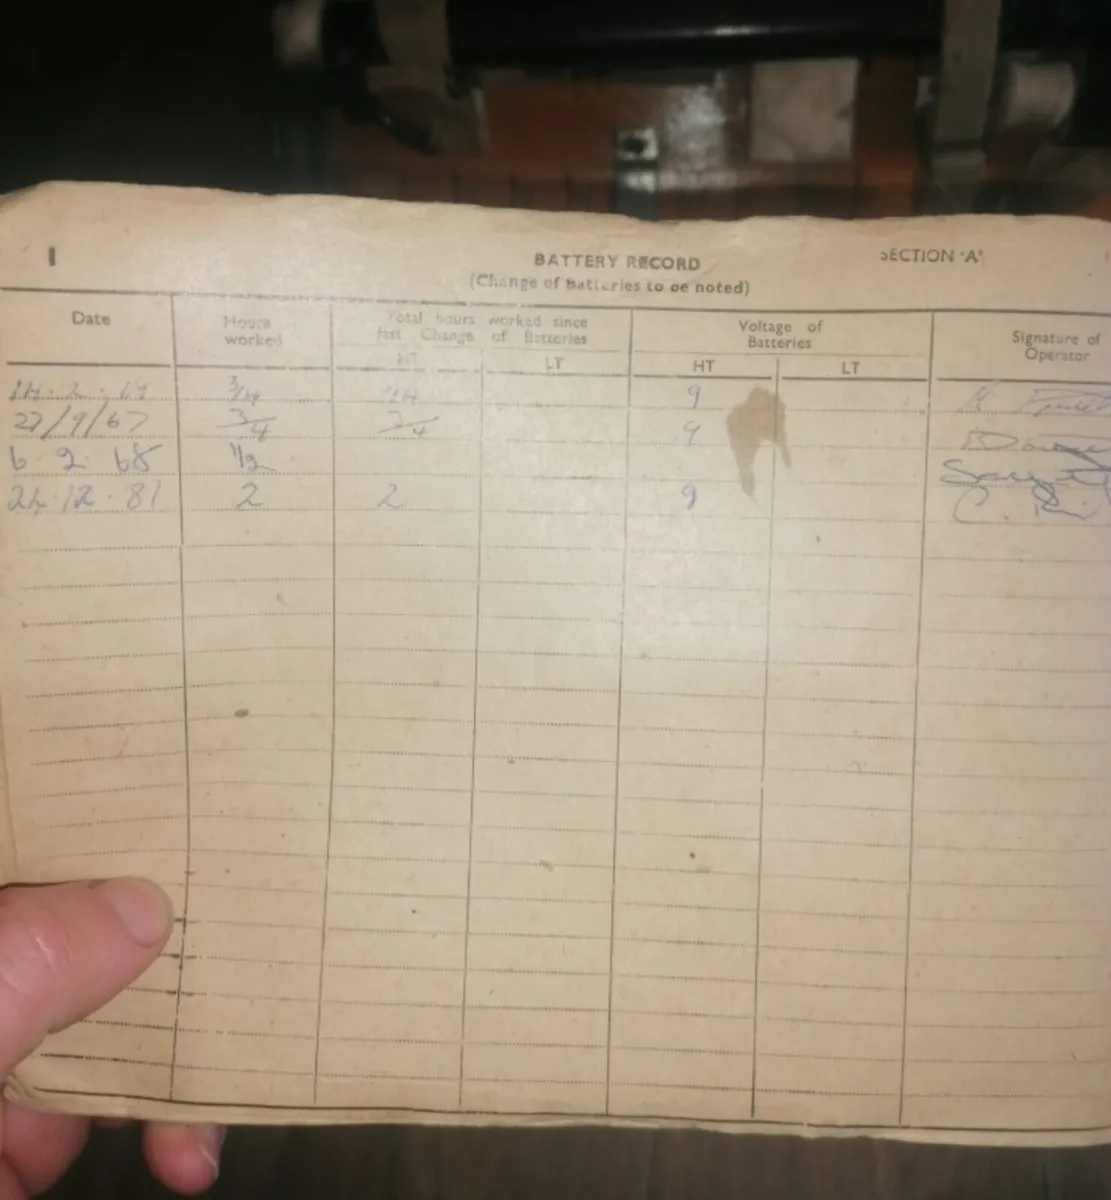 1 BATTERY RECORD SECTION 'A'
(Change of Batteries to be noted)
Date Hours worked Total hours worked since last Change of Batteries Voltage of Batteries Signature of Operator
HT LT HT LT
3/4 3/4 9
27/9/67 3/4 3/4 9
6 2 68 1/2
24.12.81 2 2 9 C.